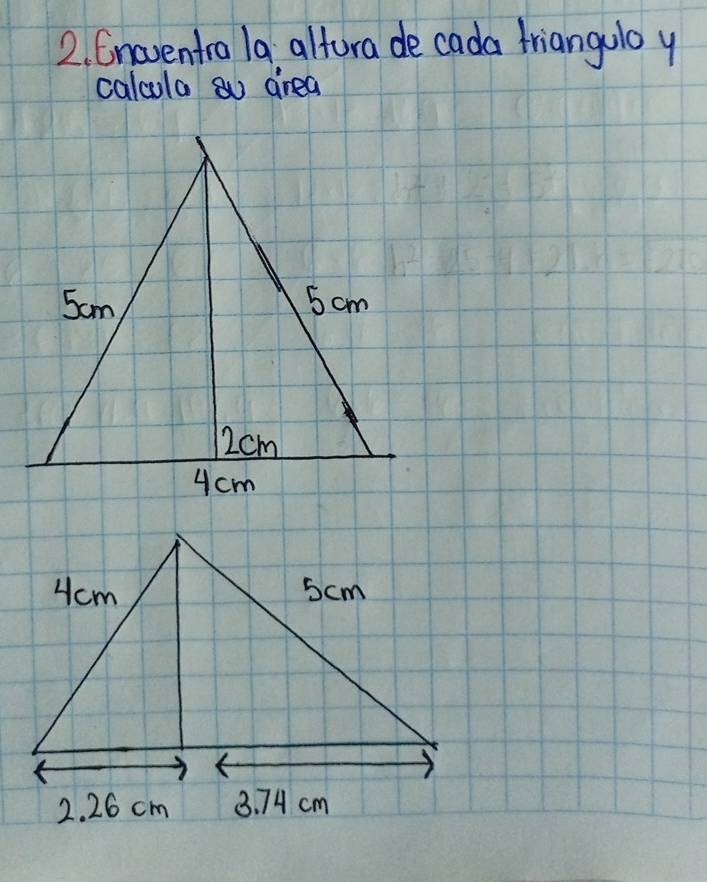 2. Encuentra la altura de cada triangulo y
calcula su área
5cm
5 cm
2cm
4cm
4cm
5cm
2.26 cm
3.74 cm